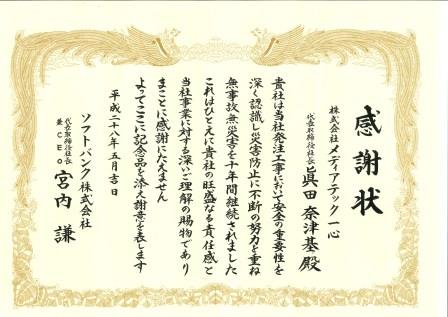 感謝状
株式会社メディアテック一心
代表取締役社長 眞田奈津基殿
貴社は当社発注工事において安全の重要性を
深く認識し災害防止に不断の努力を重ね
無事故無災害を十年間継続されました
これはひとえに貴社の旺盛なる責任感と
当社事業に対する深いご理解の賜物であり
まことに感謝にたえません
よってここに記念品を添え謝意を表します
平成二十八年五月吉日
ソフトバンク株式会社
代表取締役社長
兼CEO 宮内謙